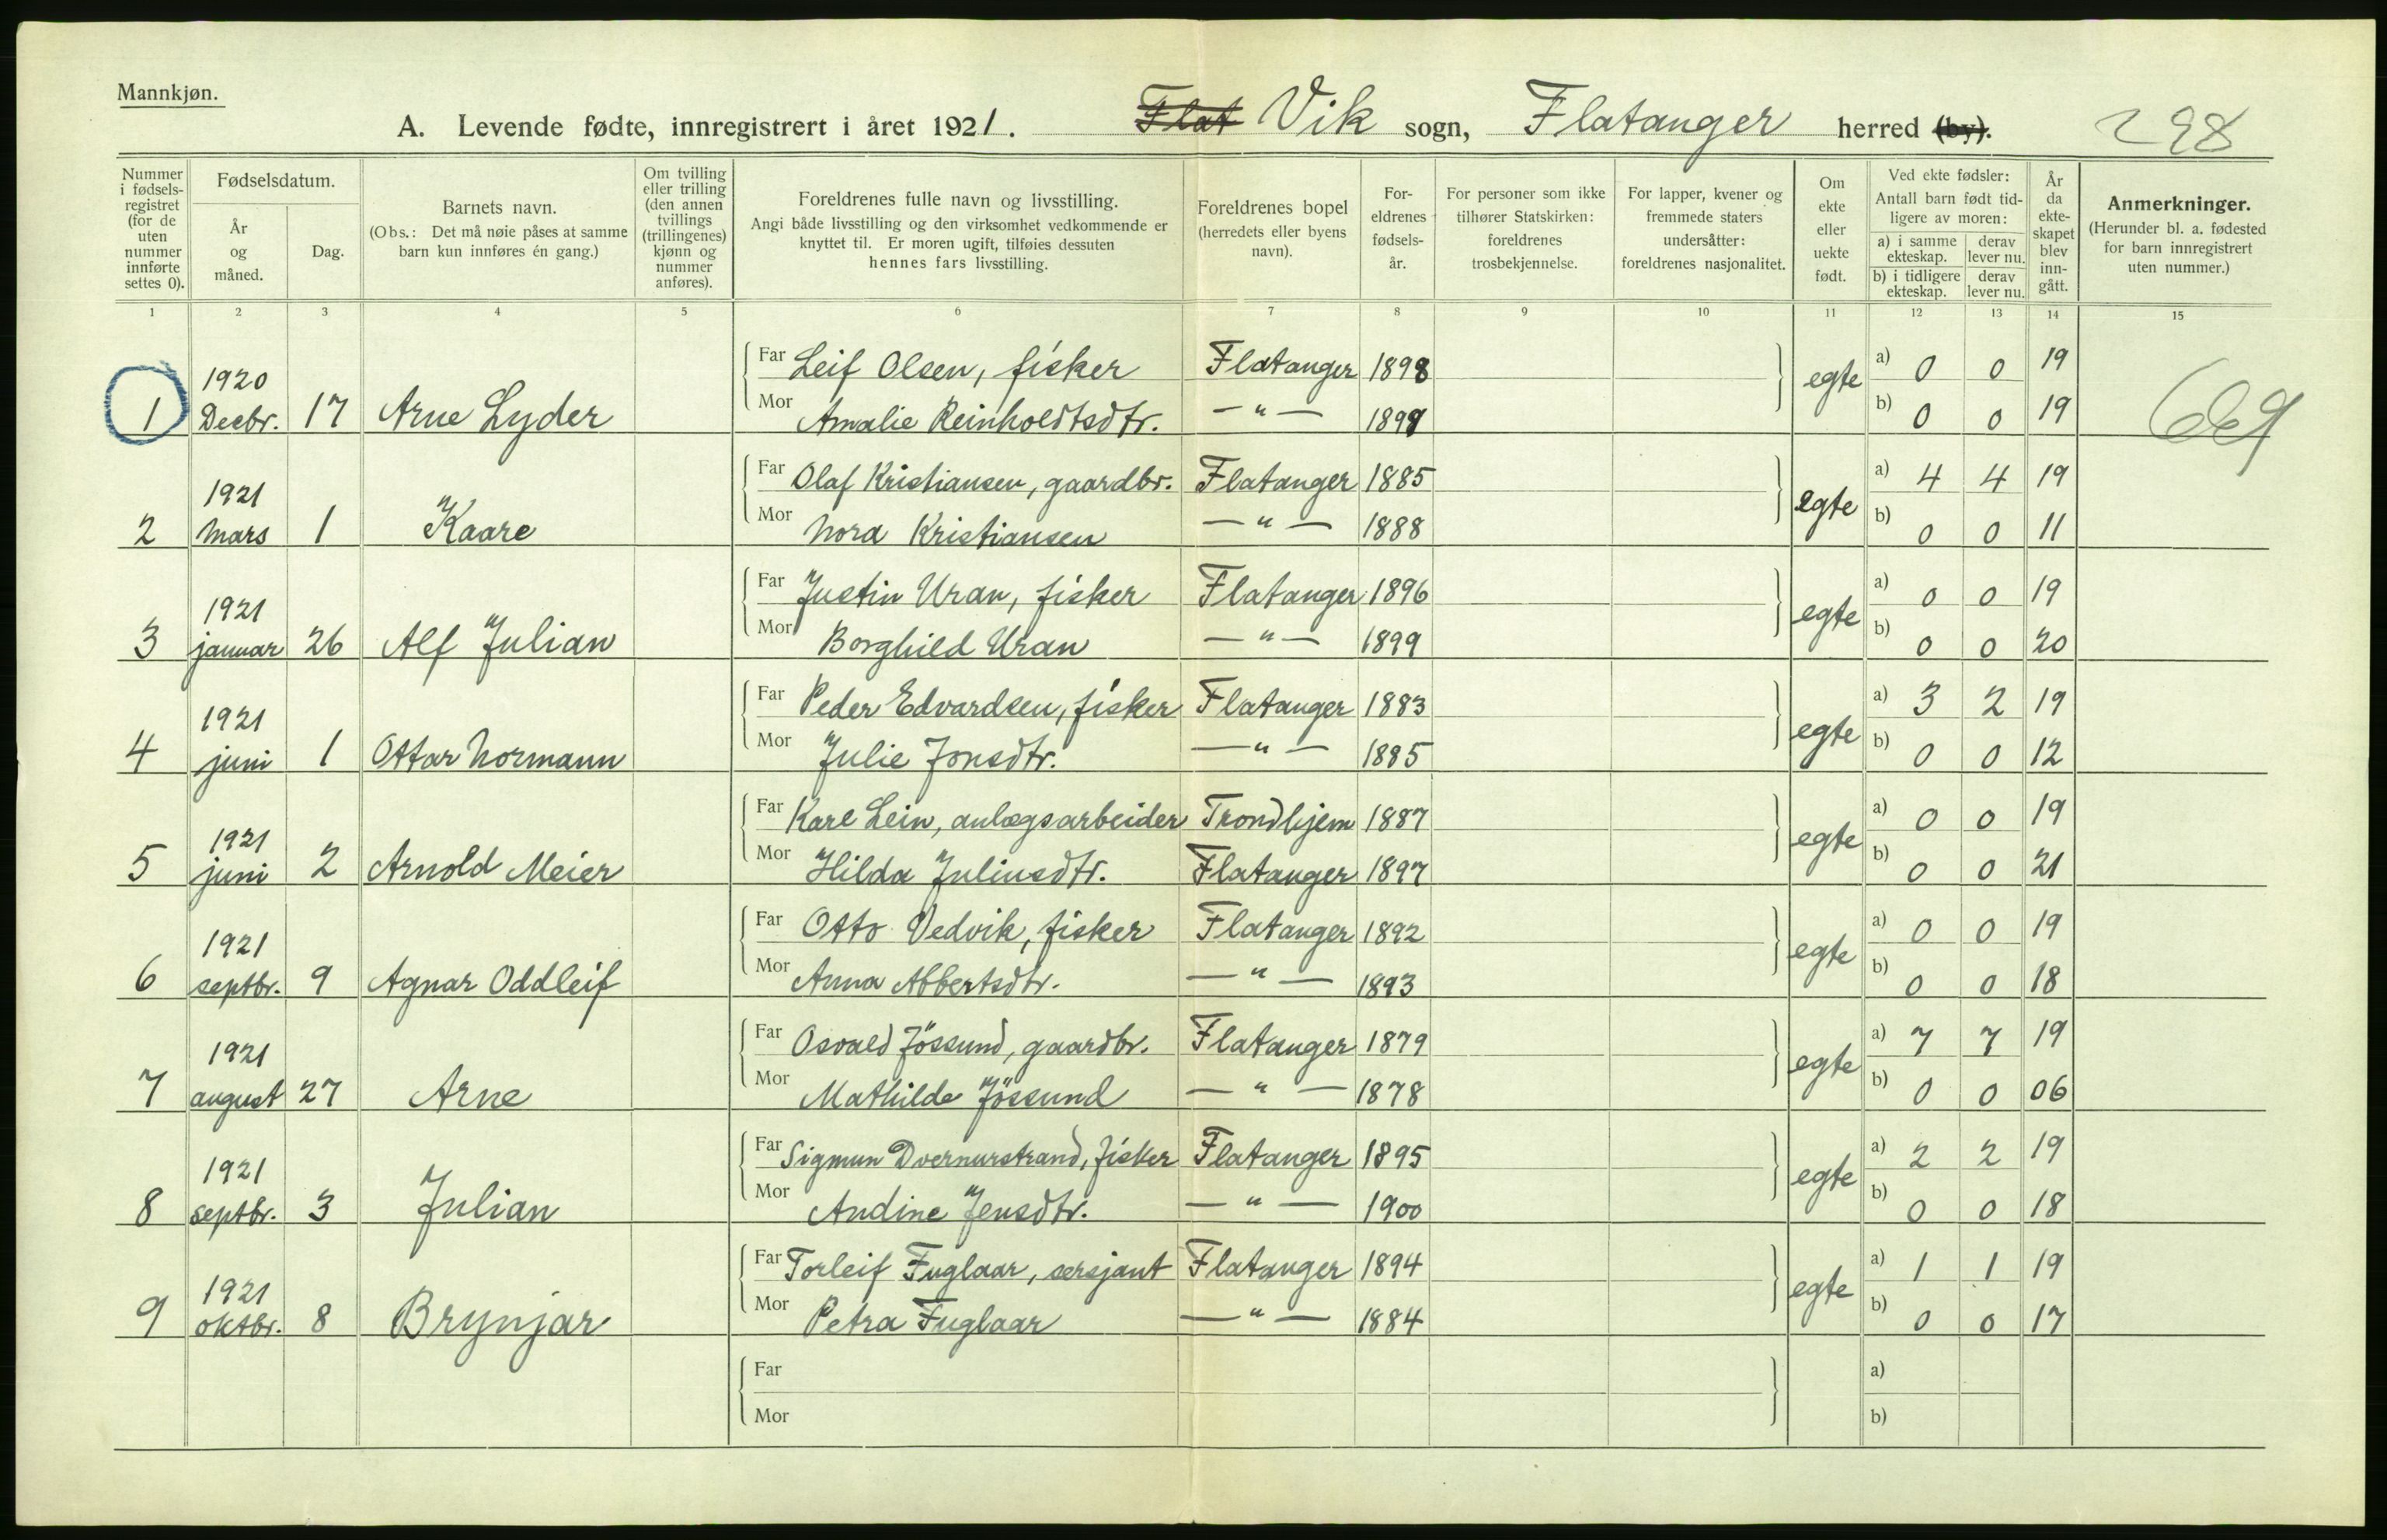 Mannkjøn.
A. Levende fødte, innregistrert i året 1921. Flat Vik sogn, Flatanger herred (by). 298
Nummer i fødsels-registret (for de uten nummer innførte settes 0).
Fødselsdatum.
År og måned.
Dag.
Barnets navn.
(Obs.: Det må nøie påses at samme barn kun innføres én gang.)
Om tvilling eller trilling (den annen tvillings (trillingenes) kjønn og nummer anføres).
Foreldrenes fulle navn og livsstilling.
Angi både livsstilling og den virksomhet vedkommende er knyttet til. Er moren ugift, tilføies dessuten hennes fars livsstilling.
Foreldrenes bopel (herredets eller byens navn).
For-eldrenes fødsels-år.
For personer som ikke tilhører Statskirken: foreldrenes trosbekjennelse.
For lapper, kvener og fremmede staters undersåtter: foreldrenes nasjonalitet.
Om ekte eller uekte født.
Ved ekte fødsler:
Antall barn født tid-ligere av moren:
a) i samme ekteskap. derav lever nu.
b) i tidligere ekteskap. derav lever nu.
År da ekte-skapet blev inn-gått.
Anmerkninger.
(Herunder bl. a. fødested for barn innregistrert uten nummer.)
1 2 3 4 5 6 7 8 9 10 11 12 13 14 15
1920 Far Leif Olsen, fisker Flatanger 1898 egte a) 0 0 19
1 Decbr. 17 Arne Lyder Mor Amalie Reinholdtsdtr. — " — 1899 b) 0 0 19
1921 Far Olaf Kristiansen, gaardbr. Flatanger 1885 egte a) 4 4 19
2 Mars 1 Kaare Mor Nora Kristiansen — " — 1888 b) 0 0 11
1921 Far Justin Uran, fisker Flatanger 1896 egte a) 0 0 19
3 januar 26 Alf Julian Mor Borghild Uran — " — 1899 b) 0 0 20
1921 Far Peder Edvardsen, fisker Flatanger 1883 egte a) 3 2 19
4 juni 1 Ottar Normann Mor Julie Jonsdtr. — " — 1885 b) 0 0 12
1921 Far Karl Lein, anlægsarbeider Trondhjem 1887 egte a) 0 0 19
5 juni 2 Arnold Meier Mor Hilda Juliusdtr. Flatanger 1897 b) 0 0 21
1921 Far Otto Vedvik, fisker Flatanger 1892 egte a) 0 0 19
6 septbr. 9 Agnar Oddleif Mor Anna Albertsdtr. — " — 1893 b) 0 0 18
1921 Far Osvald Jössund, gaardbr. Flatanger 1879 egte a) 7 7 19
7 august 27 Arne Mor Mathilde Jössund — " — 1878 b) 0 0 06
1921 Far Sigmun Dvernurstrand, fisker Flatanger 1895 egte a) 2 2 19
8 septbr. 3 Julian Mor Andine Jensdtr. — " — 1900 b) 0 0 18
1921 Far Torleif Fuglaar, sersjant Flatanger 1894 egte a) 1 1 19
9 oktbr. 8 Brynjar Mor Petra Fuglaar — " — 1884 b) 0 0 17
Far a)
Mor b)